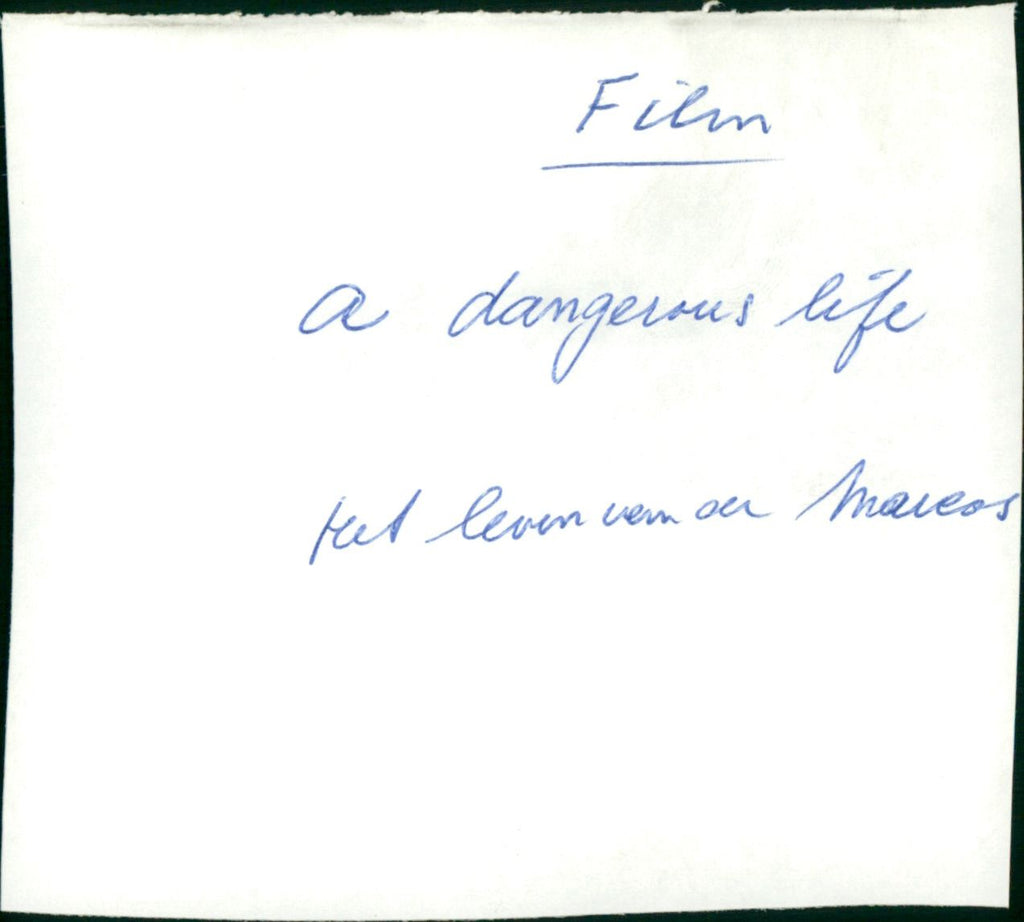 Film
a dangerous life
Het leven van de Marcos